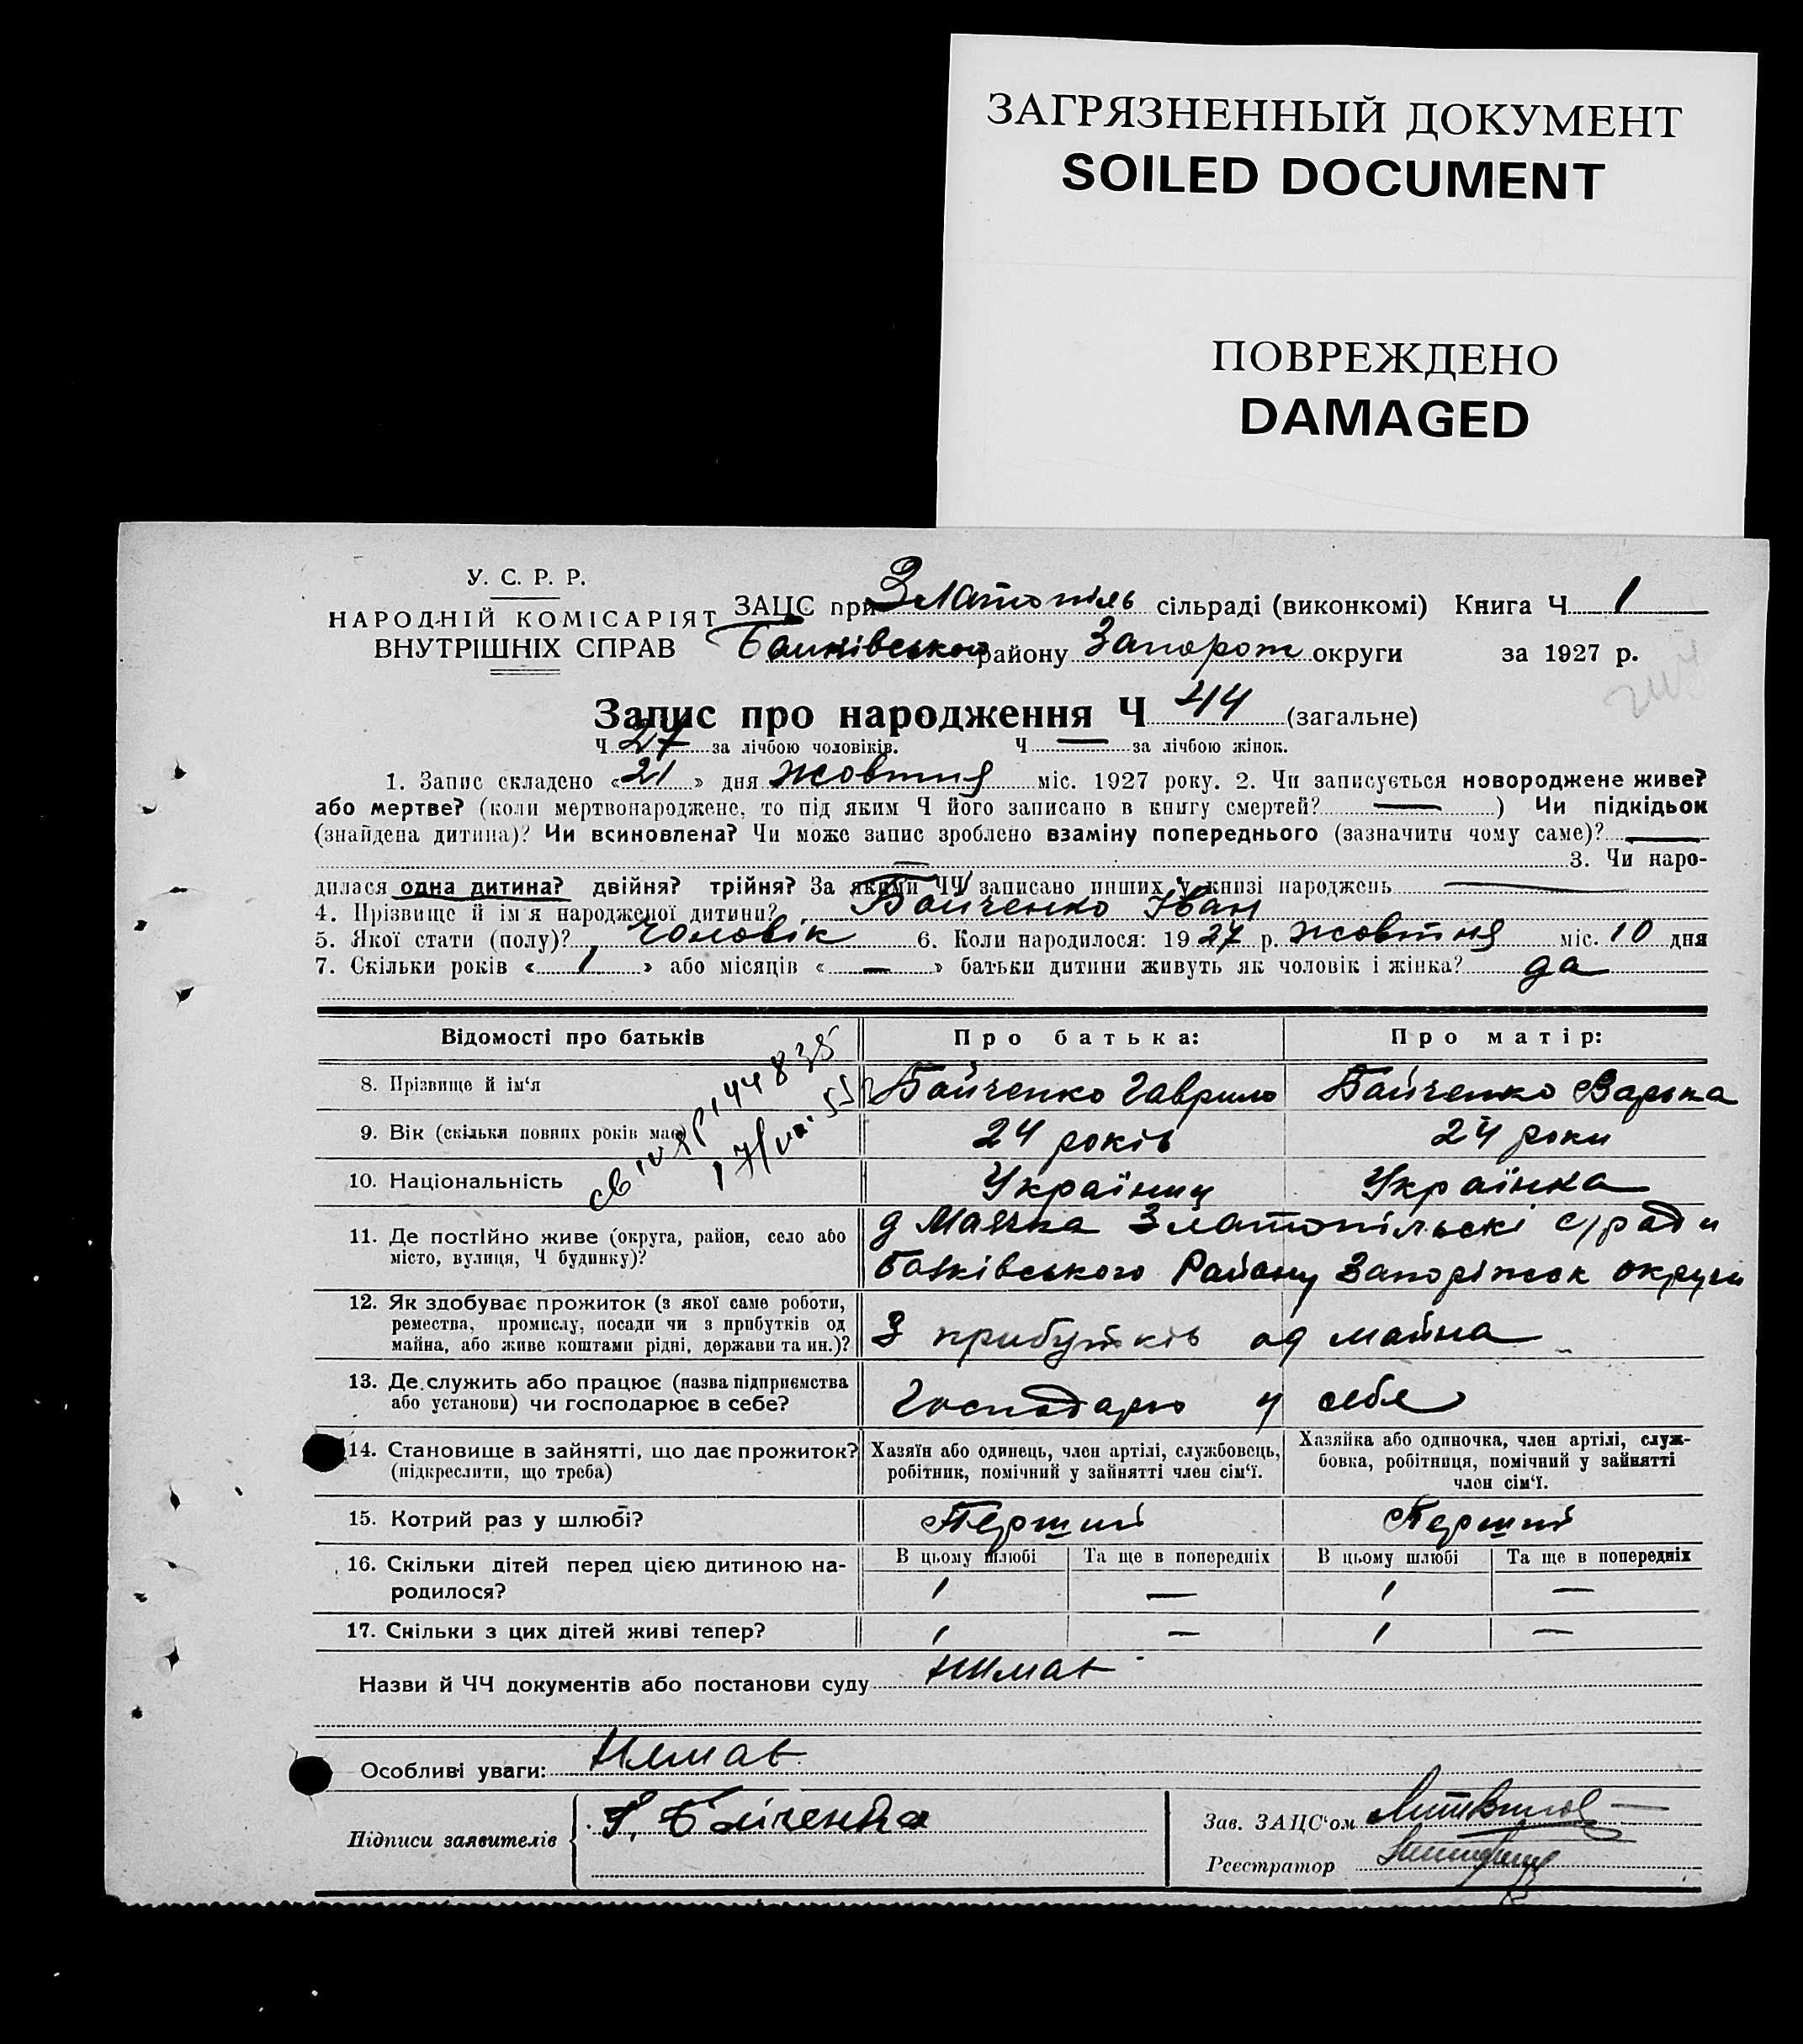 ЗАГРЯЗНЕННЫЙ ДОКУМЕНТ
SOILED DOCUMENT
ПОВРЕЖДЕНО
DAMAGED
У. С. Р. Р.
НАРОДНІЙ КОМІСАРІЯТ
ВНУТРІШНІХ СПРАВ
ЗАЦС при Златопіль сільраді (виконкомі) Книга Ч 1
району Запорож округи за 1927 р.
Запис про народження Ч 44 (загальне)
Ч 27 за лічбою чоловіків. Ч — за лічбою жінок.
1. Запис складено «21» дня жовтня міс. 1927 року. 2. Чи записується новороджене живе?
або мертве? (коли мертвонароджене, то під яким Ч його записано в книгу смертей? — ) Чи підкідьок
(знайдена дитина)? Чи всиновлена? Чи може запис зроблено взаміну попереднього (зазначити чому саме)? —
— 3. Чи наро-
дилася одна дитина? двійня? трійня? За якими ЧЧ записано инших у книзі народжень —
4. Прізвище й ім'я народженої дитини? Бойченко Іван
5. Якої стати (полу)? Чоловік 6. Коли народилося: 1927 р. жовтня міс. 10 дня
7. Скільки років «1» або місяців «—» батьки дитини живуть як чоловік і жінка? да
Відомості про батьків Про батька: Про матір:
8. Прізвище й ім'я Бойченко Гаврило Бойченко Варька
9. Вік (скільки повних років має) 24 років 24 роки
10. Національність Українец Українка
11. Де постійно живе (округа, район, село або
місто, вулиця, Ч будинку)?
д Маячка Златопільскі с/ради
Району Запоріжск округи
12. Як здобуває прожиток (з якої саме роботи,
ремества, промислу, посади чи з прибутків од
майна, або живе коштами рідні, держави та ин.)?
З прибутків од майна
13. Де служить або працює (назва підприємства
або установи) чи господарює в себе?
Господарю у себе
14. Становище в зайнятті, що дає прожиток?
(підкреслити, що треба)
Хазяїн або одинець, член артілі, службовець,
робітник, помічний у зайнятті член сім'ї.
Хазяйка або одиночка, член артілі, служ-
бовка, робітниця, помічний у зайнятті
член сім'ї.
15. Котрий раз у шлюбі? Перший Перший
16. Скільки дітей перед цією дитиною на-
родилося?
В цьому шлюбі Та ще в попередніх В цьому шлюбі Та ще в попередніх
1 — 1 —
17. Скільки з цих дітей живі тепер? 1 — 1 —
Назви й ЧЧ документів або постанови суду
Особливі уваги:
Підписи заявителів
Зав. ЗАЦС'ом
Реєстратор